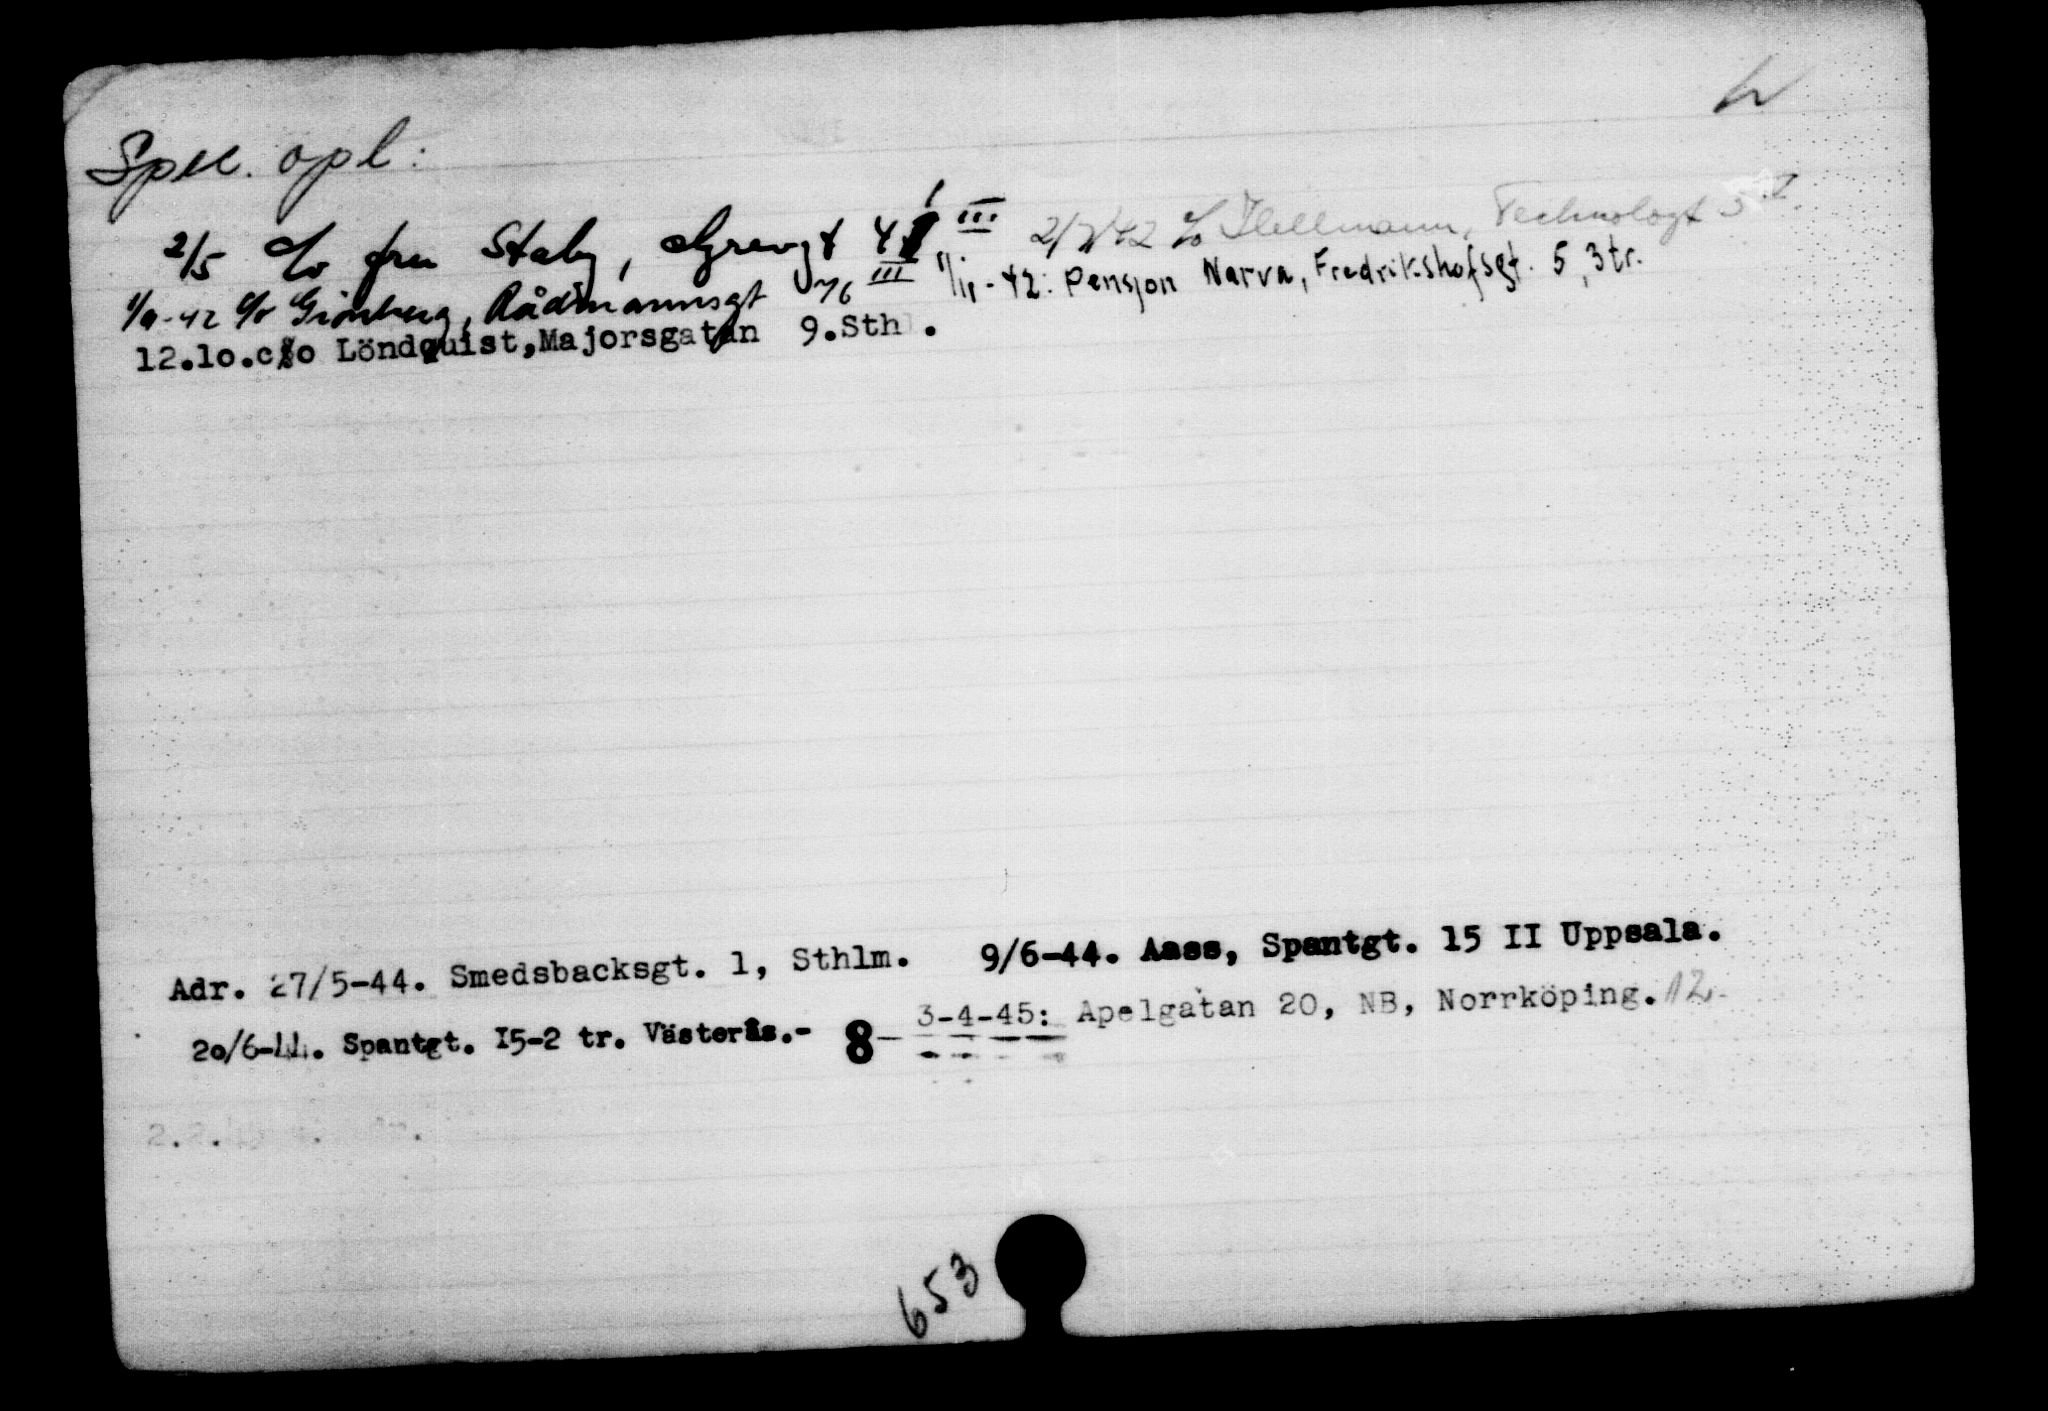 Spec. opl:
2/5 c/o fru Staby, Grevgt 41 III 2/7/42 c/o Hellmann, Technologt 5 I.
1/9-42 c/o Grönberg, Rådmannsgt 76 III 1/11-42: Pensjon Narva, Fredrikshofsgt. 5, 3tr.
12.lo.c/o Löndquist,Majorsgatan 9.Sth .
Adr. 27/5-44. Smedsbacksgt. 1, Sthlm. 9/6-44. Aass, Spantgt. 15 II Uppsala.
2o/6-44. Spantgt. I5-2 tr. Västerås.- 8- 3-4-45: Apelgatan 20, NB, Norrköping. 12.
2.2.
653